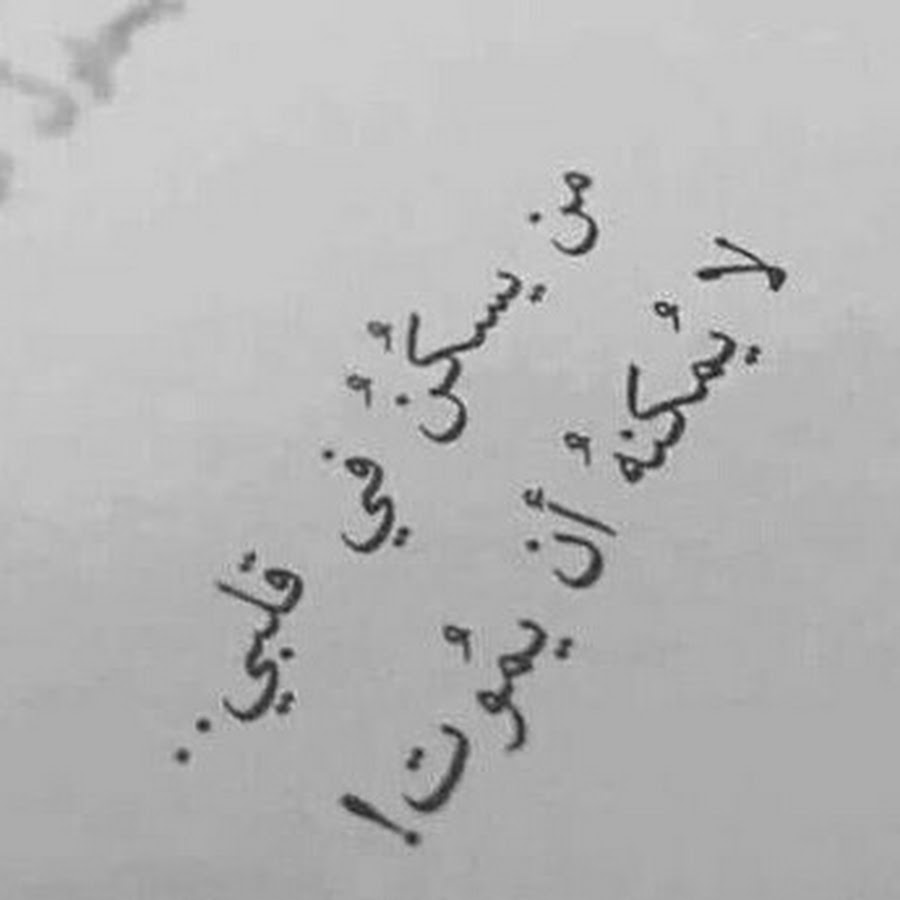 من يسكنُ ُ في قلبي..
لا يُمكنهُ أن يمُوت!